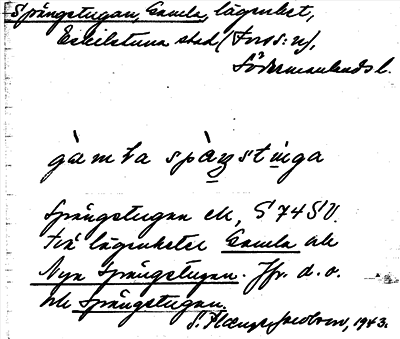 Spångstugan, Gamla, lägenhet,
Eskilstuna stad (Fors: n),
Södermanlands l.
gàmla spàŋstúga
Spångstugan ek, S 74 SV.
två lägenheter Gamla och
Nya Spångstugan. Jfr. d. o.
ek Spångstugan.
S. Jacobson, 1943.